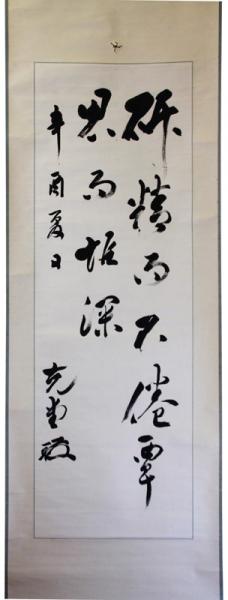 研精而不倦覃
思而深
辛酉夏日
克